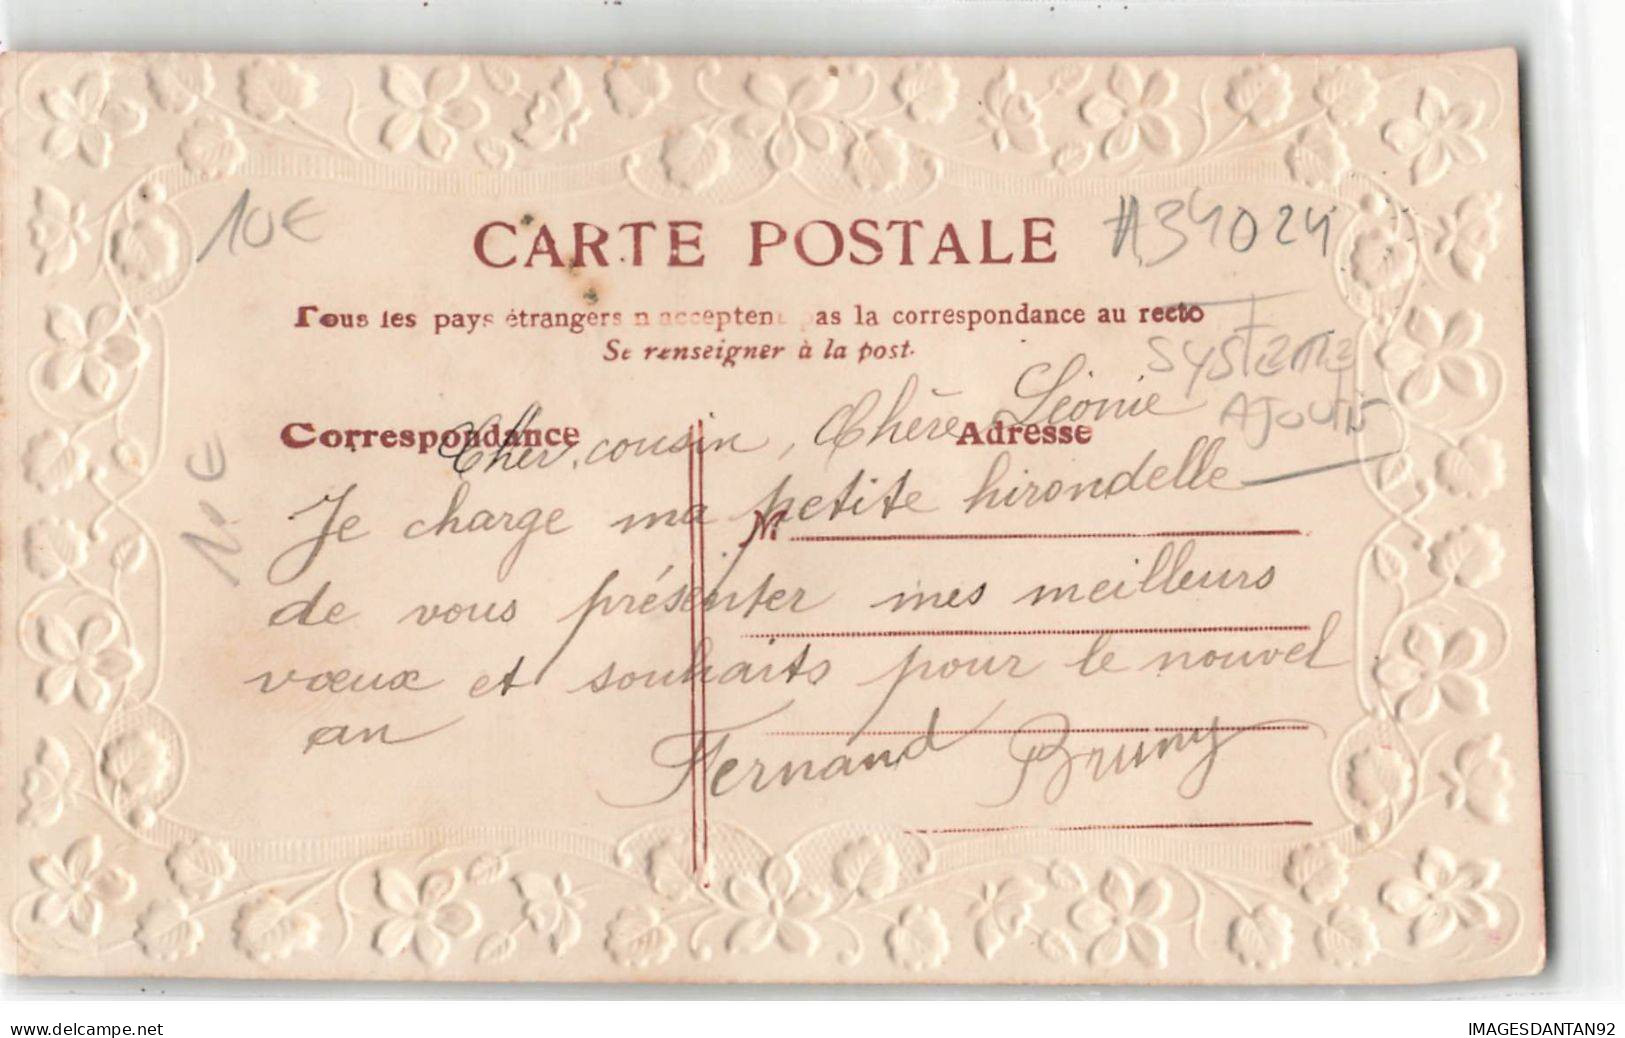 10€
CARTE POSTALE
#34024
Tous les pays étrangers n acceptent pas la correspondance au recto
Se renseigner à la post.
SYSTEME
AJOUTIS
Correspondance
Adresse
Cher cousin, Chère Léonie
Je charge ma petite hirondelle
M
de vous présenter mes meilleurs
vœux et souhaits pour le nouvel
an
Fernand Bruny
www.delcampe.net
IMAGESDANTAN92